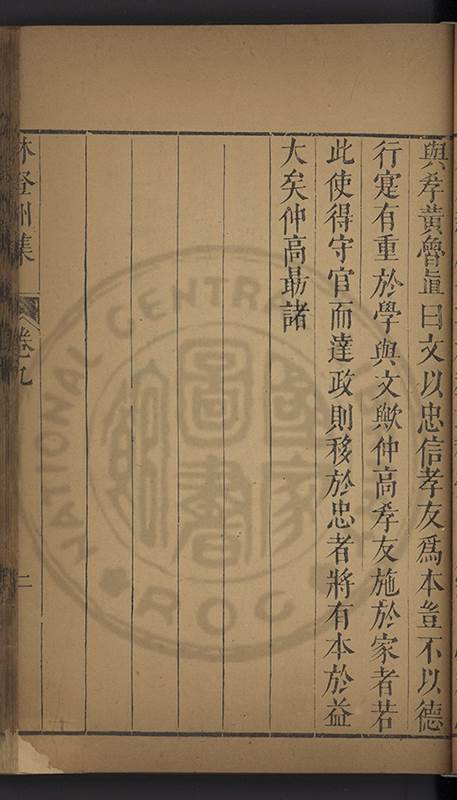 與孝黄魯眞曰文以忠信孝友爲本豈不以德
行寔有重於學與文歟仲高孝友施於家者若
此使得守官而達政則移於忠者將有本於益
大矣仲高勗諸
林登州集
卷之九
二
NATIONAL CENTRAL
ROC
國家圖書